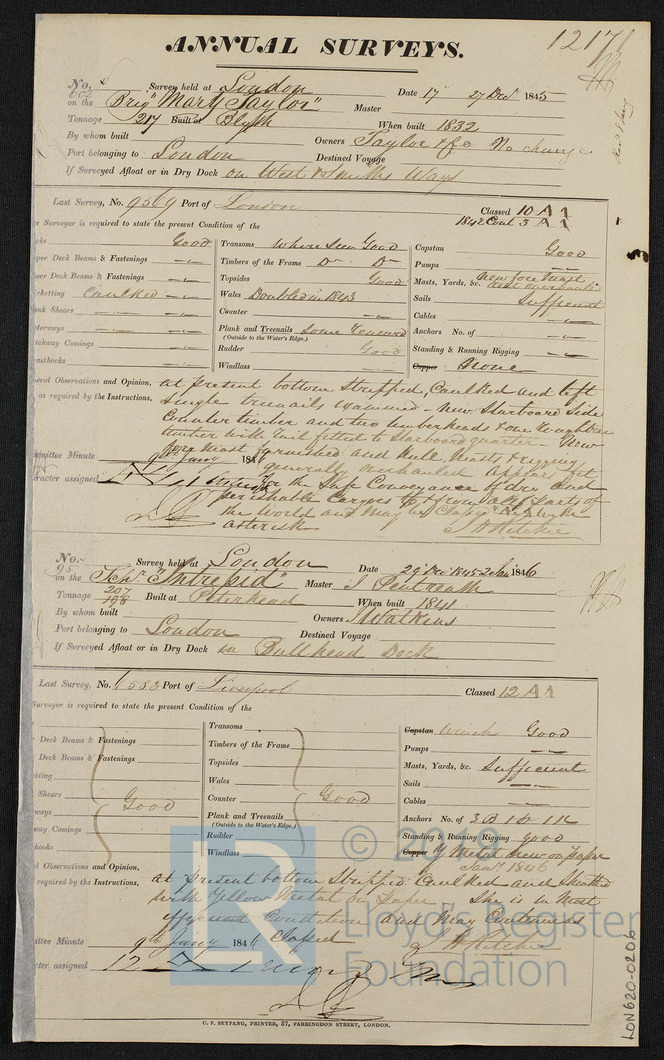 ANNUAL SURVEYS.
1217
No. 602 Survey held at London Date 17 27 Decr 1845
on the Brig "Mary Taylor" Master
Tonnage 217 Built at Blyth When built 1832
By whom built Owners Taylor & Co No change
Port belonging to London Destined Voyage
If Surveyed Afloat or in Dry Dock on West & Smiths Ways
Last Survey, No. 9569 Port of London Classed 10 A 1
1842 Cont 3 A 1
Surveyor is required to state the present Condition of the
Good
per Deck Beams & Fastenings
wer Deck Beams & Fastenings
cketting Caulked
nk Shears
terways
tchway Comings
easthooks
Transoms where seen Good
Timbers of the Frame Do Do
Topsides Good
Wales Doubled in 1843
Counter
Plank and Treenails some renewed
(Outside to the Water's Edge.)
Rudder Good
Windlass
Capstan Good
Pumps
Masts, Yards, &c. new fore mast
Sails Sufficient
Cables
Anchors No. of
Standing & Running Rigging
Copper None
eral Observations and Opinion, at present bottom stripped, Caulked and left
as required by the Instructions, single treenails examined - New Starboard Side
Counter timber and two timberheads
timber with fitted to starboard quarter - New
Fore Mast furnished and Hull, Masts & rigging
mmittee Minute 9th Jany 1846 generally overhauled appear fit
racter assigned for the Safe Conveyance of dry and
perishable Cargoes to & from all parts of
the World and may be Classed A 1 Red with
asterisk J H Ritchie
No. 95 Survey held at London Date 29 Dec 1845 2 Jan 1846
on the Schr "Intrepid" Master J Pentreath
Tonnage 207 198 Built at Peterhead When built 1841
By whom built Owners J Watkins
Port belonging to London Destined Voyage
If Surveyed Afloat or in Dry Dock in Bullhead Dock
Last Survey, No. 6583 Port of Liverpool Classed 12 A 1
Surveyor is required to state the present Condition of the
Deck Beams & Fastenings
Deck Beams & Fastenings
etting
Shears
ways Good
way Comings
hooks
Transoms
Timbers of the Frame
Topsides
Wales
Counter Good
Plank and Treenails
(Outside to the Water's Edge.)
Rudder
Windlass
Capstan Winch Good
Pumps
Masts, Yards, &c. Sufficient
Sails
Cables
Anchors No. of 3 B 1 S 1 K
Standing & Running Rigging good
Copper Y Metal New on paper
Jany 1846
al Observations and Opinion, at present bottom Stripped Caulked and Sheathed
required by the Instructions, with Yellow Metal on paper She is in Most
efficient Condition and May Continue as
ittee Minute 9th Jany 1846 Classed J H Ritchie
cter assigned 12 A 1
C. F. SEYFANG, PRINTER, 57, FARRINGDON STREET, LONDON.
LON620-0206
LR
© 2018
Lloyd's Register
Foundation